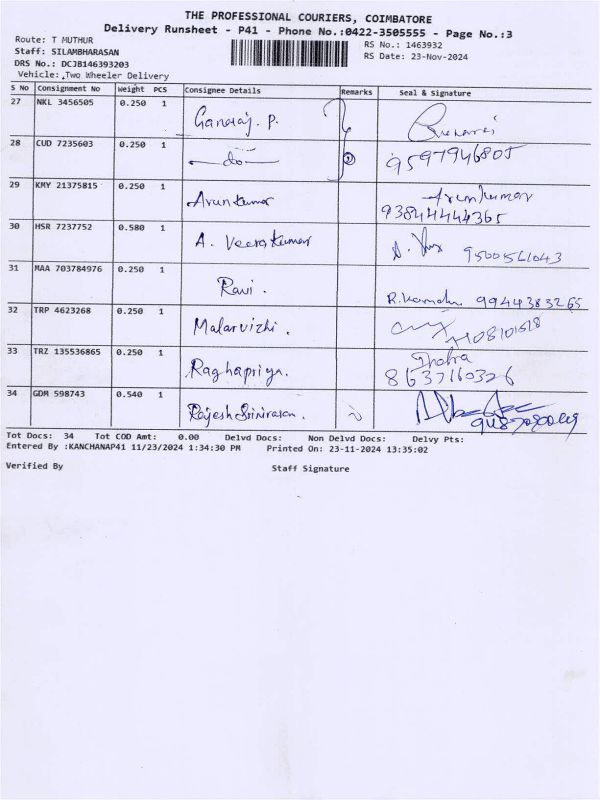 THE PROFESSIONAL COURIERS, COIMBATORE
Delivery Runsheet - P41 - Phone No.:0422-3505555 - Page No.:3
Route: T MUTHUR
RS No.: 1463932
Staff: SILAMBHARASAN
RS Date: 23-Nov-2024
DRS No.: DCJB146393203
Vehicle: ,Two Wheeler Delivery
S No Consignment No Weight PCS Consignee Details Remarks Seal & Signature
27 NKL 3456505 0.250 1 Ganaraj. P.
28 CUD 7235603 0.250 1 do 9597946805
29 KMY 21375815 0.250 1 Arunkumar Arunkumar
93844444365
30 HSR 7237752 0.580 1 A. Veerakumar 9500561043
31 MAA 703784976 0.250 1 Ravi. 9944383265
32 TRP 4623268 0.250 1 Malarvizhi.
33 TRZ 135536865 0.250 1 Raghapriya.
8637160326
34 GDM 598743 0.540 1 Rajesh Srinivasan.
Tot Docs: 34 Tot COD Amt: 0.00 Delvd Docs: Non Delvd Docs: Delvy Pts:
Entered By :KANCHANAP41 11/23/2024 1:34:30 PM Printed On: 23-11-2024 13:35:02
Verified By Staff Signature